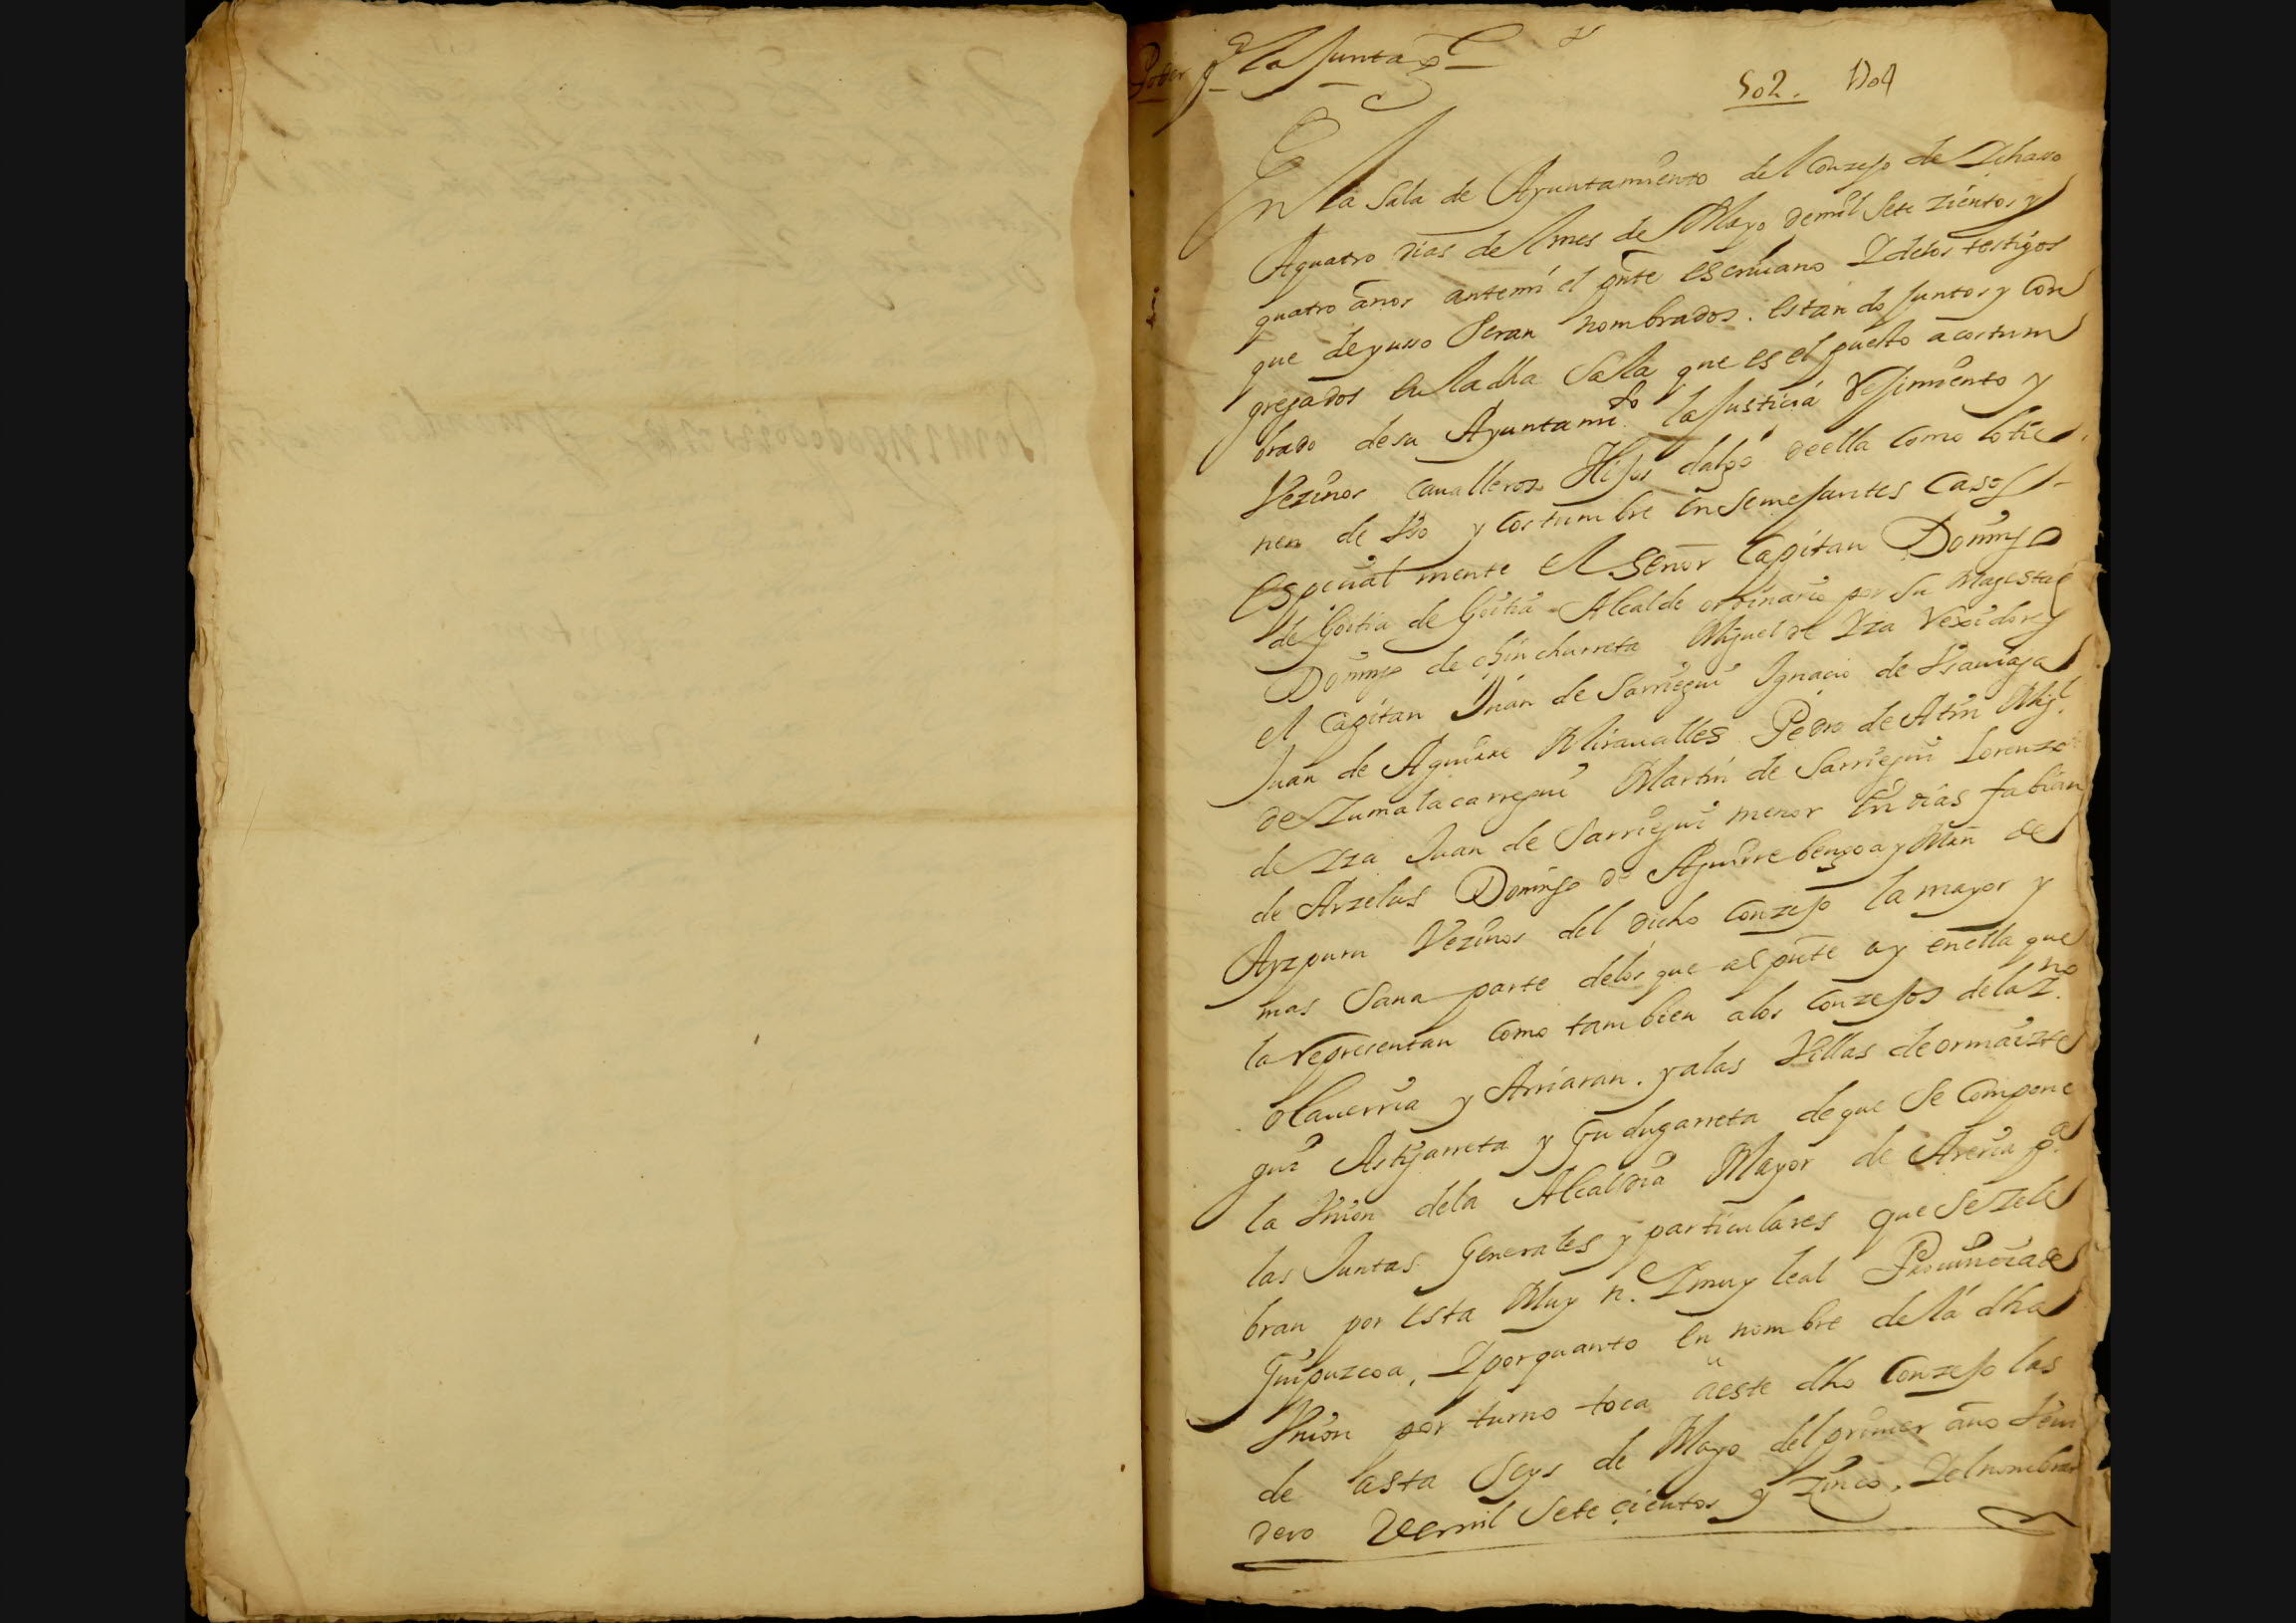 Poder pª la Junta gl
502. 1704
En la Sala de Ayuntamiento del Conzejo de Ychasso
A quatro dias del mes de Mayo de mil Sete zientos y
quatro años antemi el pnte escriuano Y delos testigos
que deyusso Seran nombrados. estando Juntos y Con
gregados en la dha Sala que es el puesto acostum
brado de su Ayuntamto la Justicia Rejimiento y
Vezinos Caualleros Hijos dalgo deella Como lo tie
nen de Vso y Costumbre en Semejantes Casos
espeçial mente el Señor Capitan Domingo
de Goitia de Goitia Alcalde ordinario por Su Magestad
Domingo de chincharreta Miguel de Yza Rexidores
el Capitan Juan de Sarriegui Ygnacio de Vsauiaga
Juan de Aguirre Miraualles Pedro de Atin Migl
de Zumalacarregui Martin de Sarriegui Lorenzo
de Yza Juan de Sarriegui menor en dias fabian
de Arzelus Domingo de Aguirre bengoa y Min de
Ayzpuru Vezinos del dicho Conzejo la mayor y
mas Sana parte delos que al pnte ay enella que
la representan Como tambien alos Conzejos de la Zno
olauerria y Arriaran. y alas Villas de ormaizte
gui Astigarreta y Gudugarreta de que Se Compone
la Vnion dela Alcaldia Mayor de Areria pª
las Juntas Generales y particulares que Se Zele
bran por esta Muy n. Y muy leal Prouinçia de
Guipuzcoa, Y porquanto en nombre de la dha
Vnion por turno toca a este dho Conzejo las
de asta Seys de Mayo del primer año Veni
dero de mil Sete çientos y Zinco, Y el nombrar